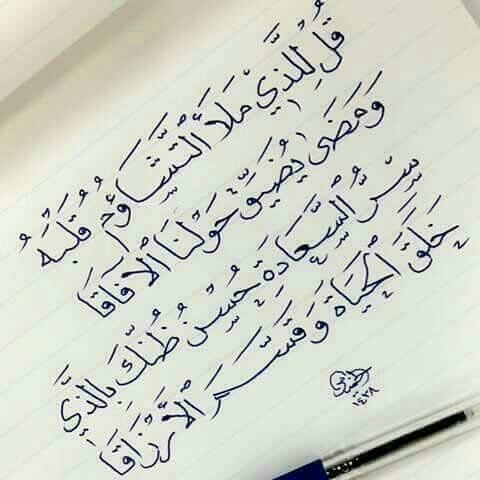 قُلْ لِلَّذِي مَلَأَ التَّشَاؤُمُ قَلْبَهُ
وَمَضَى يُضَيِّقُ حَوْلَنَا الْآفَاقَا
سِرُّ السَّعَادَةِ حُسْنُ ظَنِّكَ بِالَّذِي
خَلَقَ الْحَيَاةَ وَقَسَّمَ الْأَرْزَاقَا
١٤٣٨